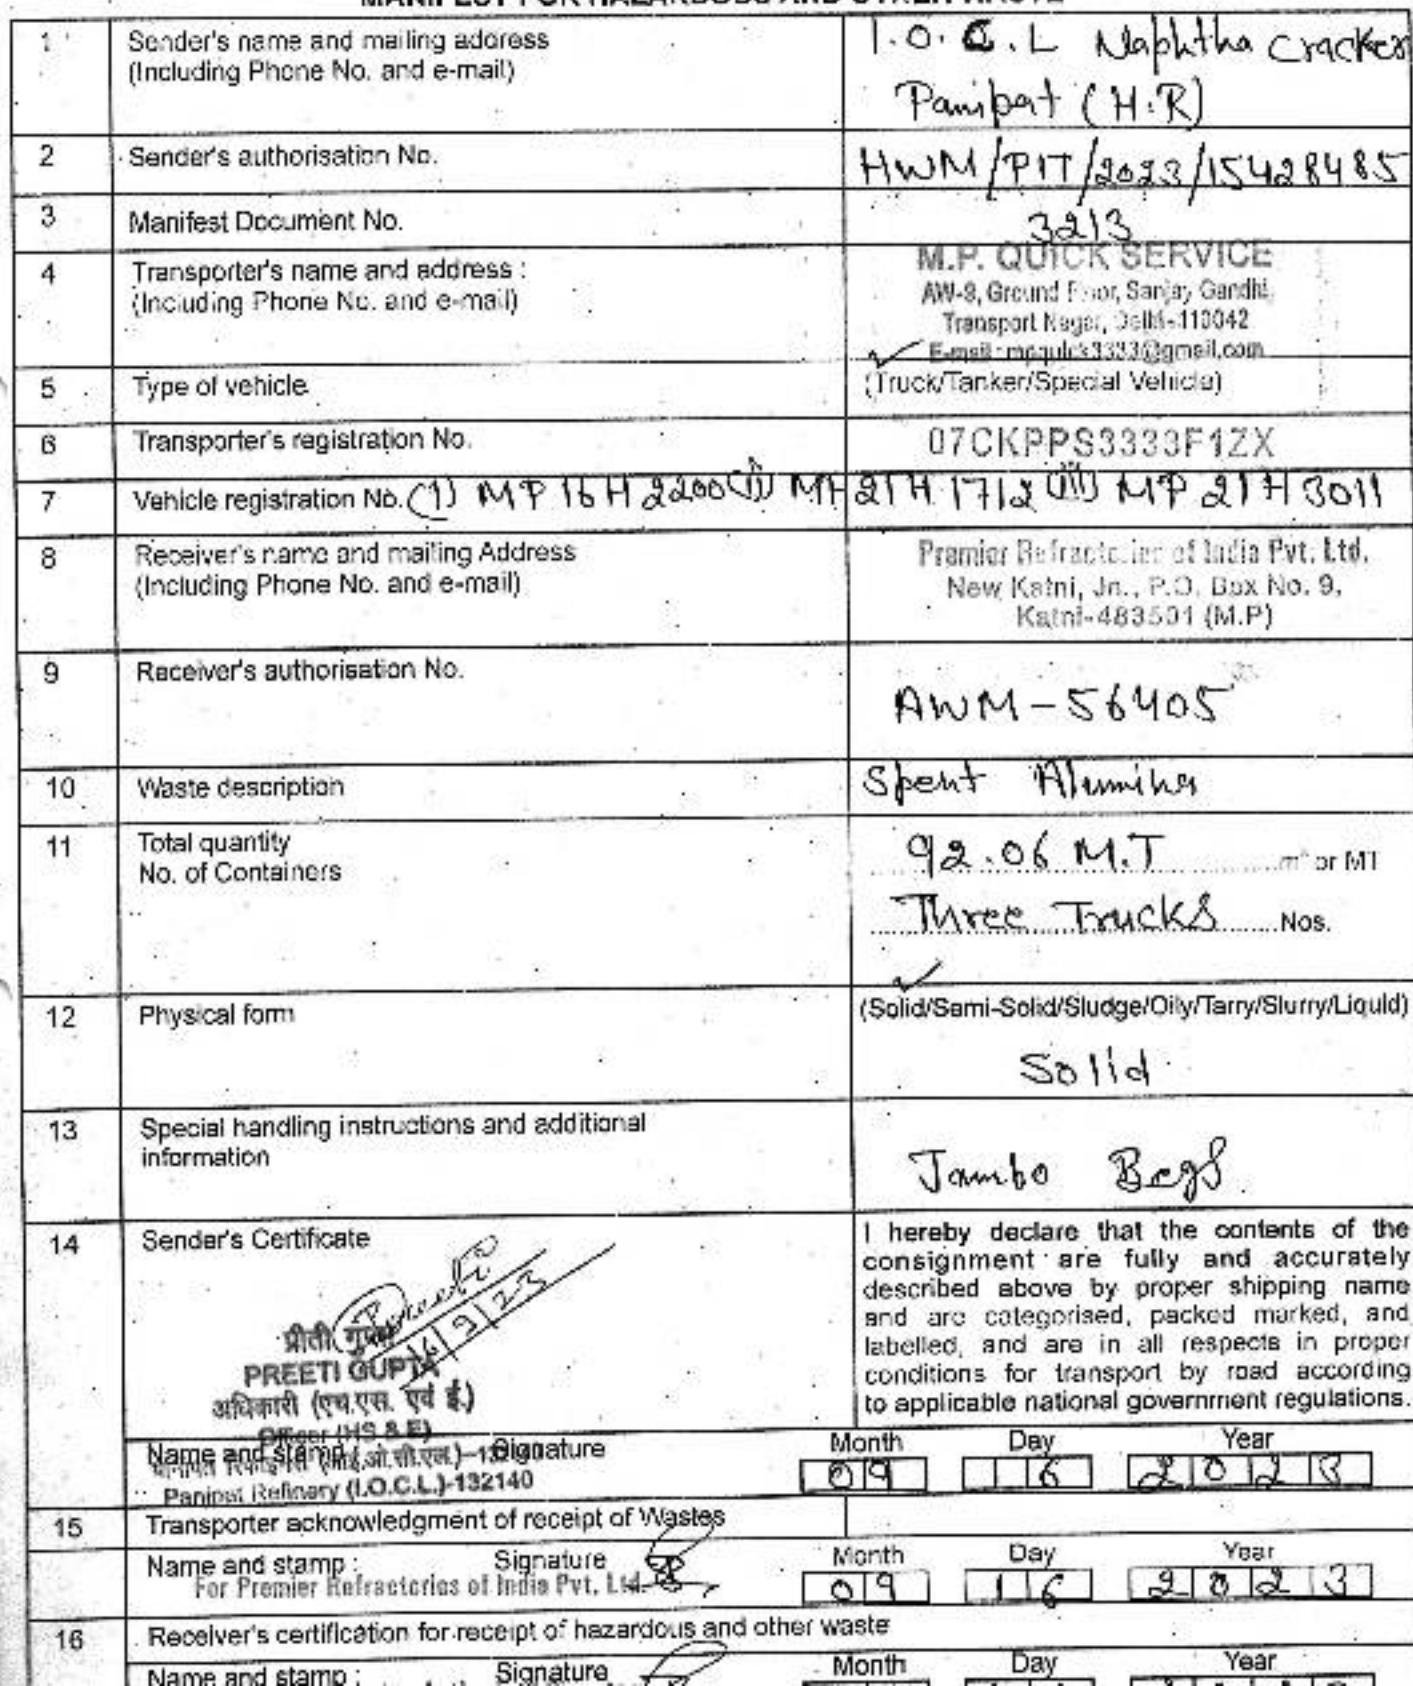 MANIFEST FOR HAZARDOUS AND OTHER WASTE
1 Sender's name and mailing address
(Including Phone No. and e-mail)
I.O.C.L Naphtha Cracker
Panipat (H.R)
2 Sender's authorisation No. HWM/PIT/2023/15428485
3 Manifest Document No. 3213
4 Transporter's name and address :
(Including Phone No. and e-mail)
M.P. QUICK SERVICE
AW-8, Ground Floor, Sanjay Gandhi,
Transport Nagar, Delhi-110042
E-mail: mpquick3333@gmail.com
5 Type of vehicle (Truck/Tanker/Special Vehicle)
6 Transporter's registration No. 07CKPPS3333F1ZX
7 Vehicle registration No. (1) MP 16 H 2200 (ii) MH 21 H 1712 (iii) MP 21 H 3011
8 Receiver's name and mailing Address
(Including Phone No. and e-mail)
Premier Refractories of India Pvt. Ltd.
New Katni, Jn., P.O. Box No. 9,
Katni-483501 (M.P)
9 Receiver's authorisation No. AWM-56405
10 Waste description Spent Alumina
11 Total quantity 92.06 M.T m³ or MT
No. of Containers Three Trucks Nos.
12 Physical form (Solid/Semi-Solid/Sludge/Oily/Tarry/Slurry/Liquid)
Solid
13 Special handling instructions and additional
information
Jambo Bags
14 Sender's Certificate
I hereby declare that the contents of the
consignment are fully and accurately
described above by proper shipping name
and are categorised, packed marked, and
labelled, and are in all respects in proper
conditions for transport by road according
to applicable national government regulations.
16/9/23
प्रीती गुप्ता
PREETI GUPTA
अधिकारी (एच.एस. एवं ई.)
Officer (HS & E)
Name and stamp : Signature Month Day Year
09 16 2023
पानीपत रिफाइनरी (आई.ओ.सी.एल.)-132140
Panipat Refinery (I.O.C.L.)-132140
15 Transporter acknowledgment of receipt of Wastes
Name and stamp : Signature Month Day Year
For Premier Refractories of India Pvt. Ltd. 09 16 2023
16 Receiver's certification for receipt of hazardous and other waste
Name and stamp : Signature Month Day Year